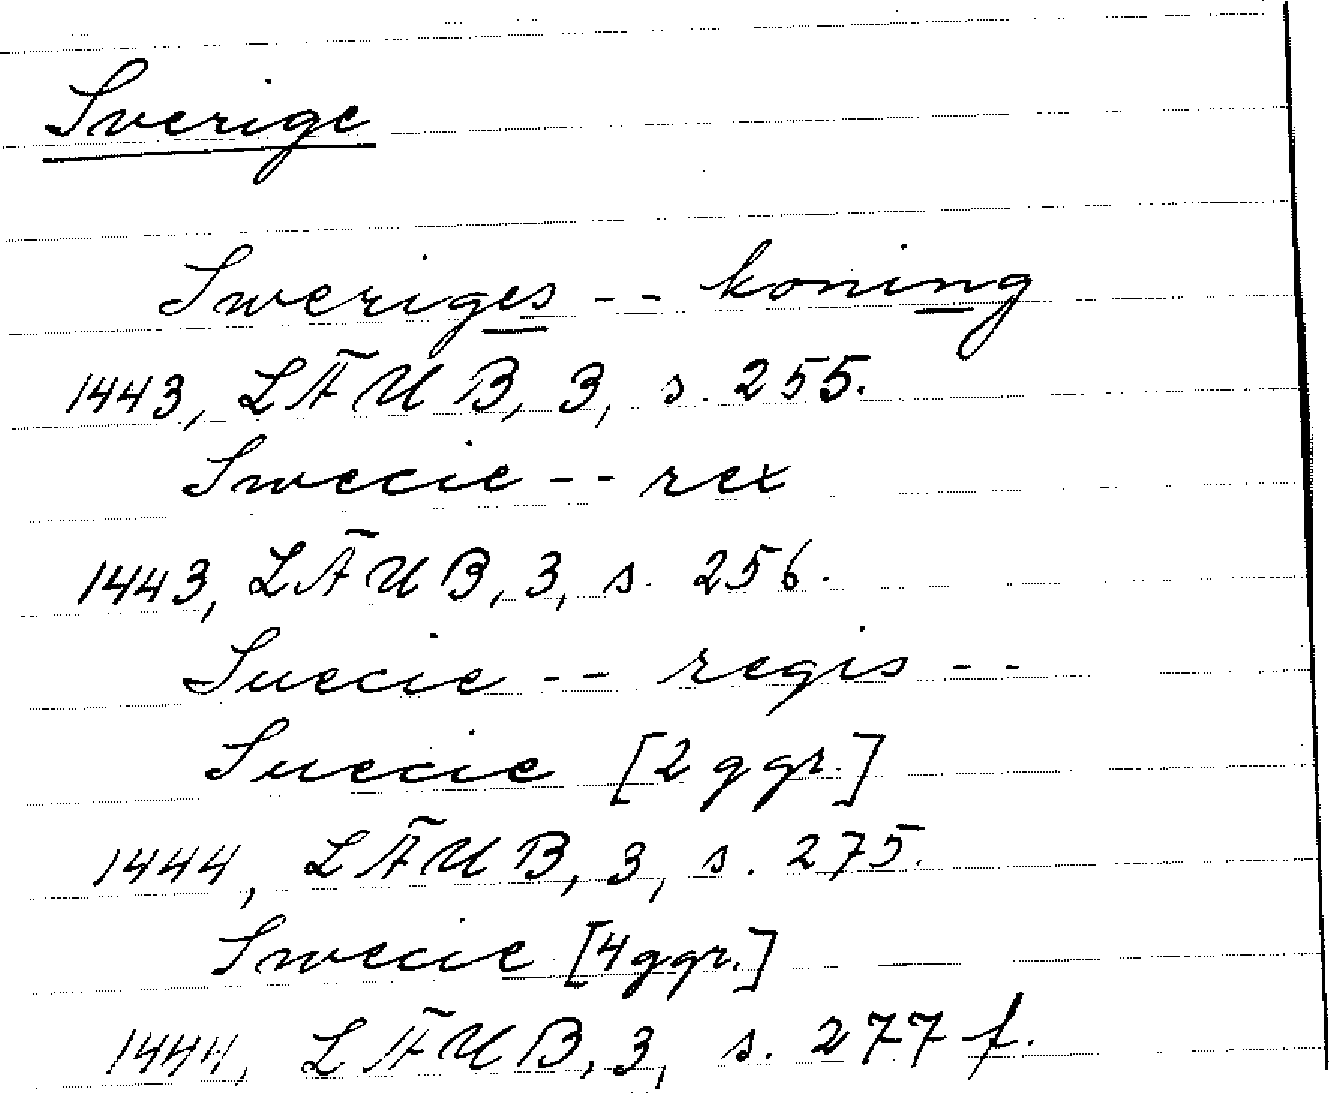 Sverige
Sweriges -- koning
1443, LÄUB, 3, s. 255.
Swecie -- rex
1443, LÄUB, 3, s. 256.
Suecie -- regis --
Suecie [2 ggr.]
1444, LÄUB, 3, s. 275.
Swecie [4 ggr.]
1444, LÄUB, 3, s. 277 f.